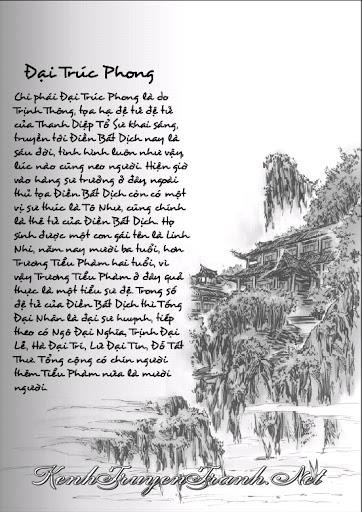 Đại Trúc Phong
Chi phái Đại Trúc Phong là do
Trịnh Thông, tọa hạ đệ tử đệ tử
của Thanh Diệp Tổ Sư khai sáng,
truyền tới Điền Bất Dịch nay là
sáu đời, tình hình luôn như vậy,
lúc nào cũng neo người. Hiện giờ
vào hàng sư trưởng ở đây, ngoài
thủ tọa Điền Bất Dịch còn có một
vị sư thúc là Tô Như, cũng chính
là thê tử của Điền Bất Dịch. Họ
sinh được một con gái tên là Linh
Nhi, năm nay mười ba tuổi, hơn
Trương Tiểu Phàm hai tuổi, vì
vậy Trương Tiểu Phàm ở đây quả
thực là một tiểu sư đệ. Trong số
đệ tử của Điền Bất Dịch thì Tống
Đại Nhân là đại sư huynh, tiếp
theo có Ngô Đại Nghĩa, Trịnh Đại
Lễ, Hà Đại Trí, Lữ Đại Tín, Đỗ Tất
Thư. Tổng cộng có chín người
thêm Tiểu Phàm nữa là mười
người.
KenhTruyenTranh.Net